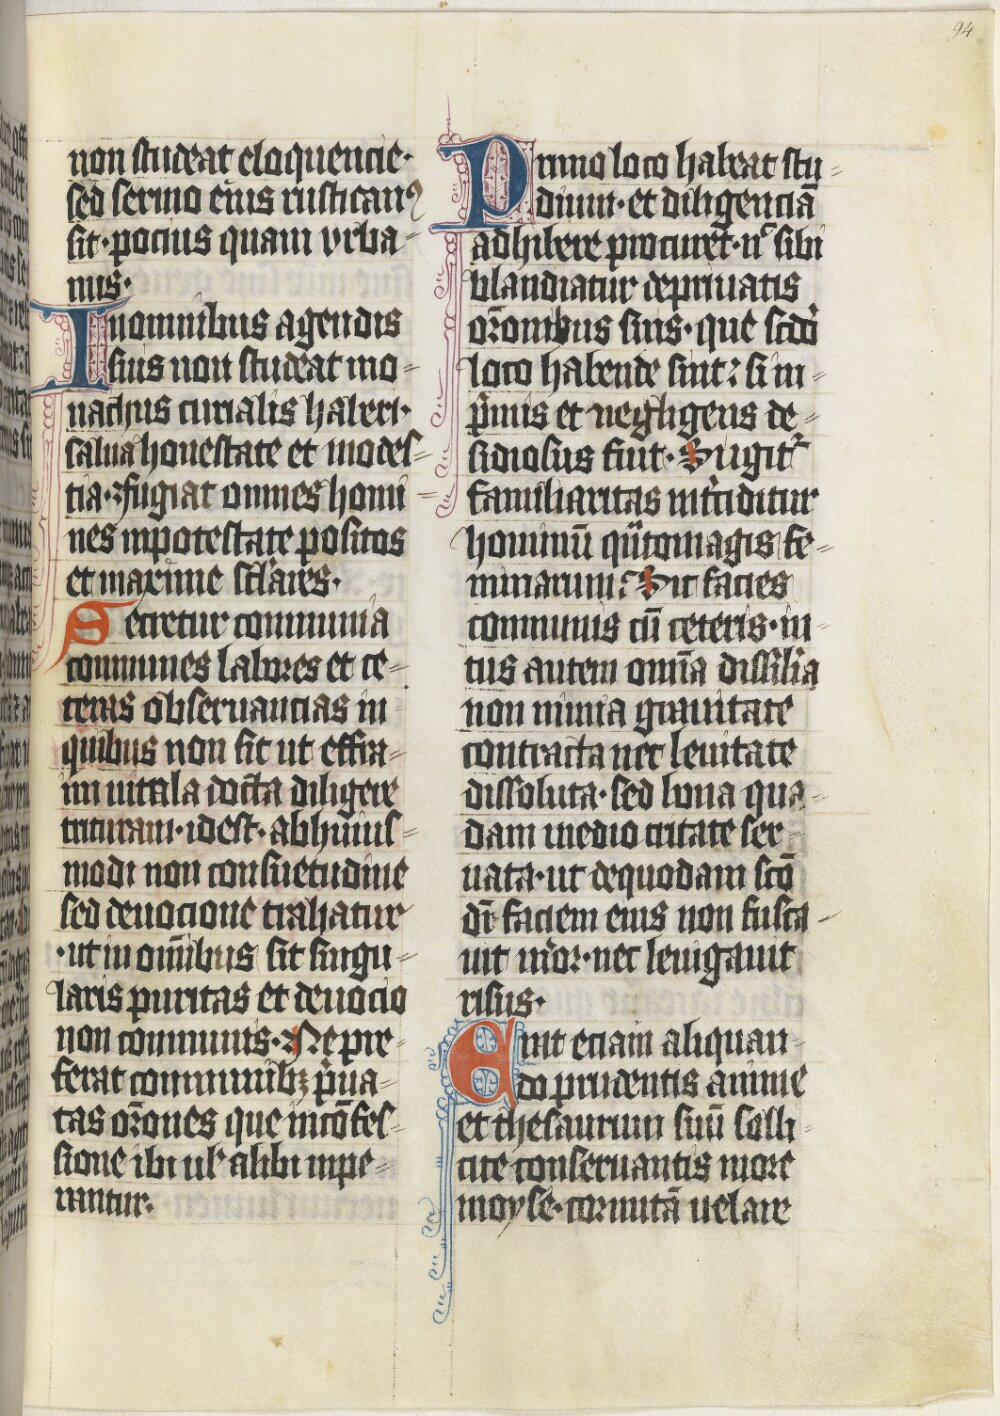 94
non studeat eloquencie·
sed sermo eius rusticanꝰ
sit· pocius quam vrba=
nus·
In omnibus agendis
suis non studeat mo=
nachus curialis haberi·
salua honestate et modes=
tia· fugiat omnes homi=
nes inpotestate positos
et maxime sclares·
Sectetur communia
communes labores et ce=
teras obseruancias in
quibus non sit ut effra=
im uitula docta diligere
trituram· idest· abhuius=
modi non consuetudine
sed deuocione trahatur
·ut in omībus sit singu=
laris puritas et deuocio
non communis· Ne pre=
ferat communibꝫ pͥua=
tas orōnes que in cōfes=
sione ibi ul' alibi inpe=
rantur·
Primo loco habeat stu=
dium· et diligenciā
adhibere procuret· nͨ sibi
blandiatur depriuatis
orōnibus suis· que scdō
loco habende sint: si in=
pͥmis et negligens de=
sidiosus fuit· Fugit᷑
familiaritas
hominū qͣntomagis fe=
minarum: Sit facies
communis cū ceteris· in=
tus autem omīa dissilīa
non nimia grauitate
contracta nec leuitate
dissoluta· sed bona qua=
dam mediocritate ser
uata· ut dequodam scō
dr̄ faciem eius non fusca=
uit mͤror· nec leuigauit
risus·
Erit eciam aliquan=
do prudentis anime
et thesaurum suū solli=
cite conseruantis more
moyse· cornutā uelare